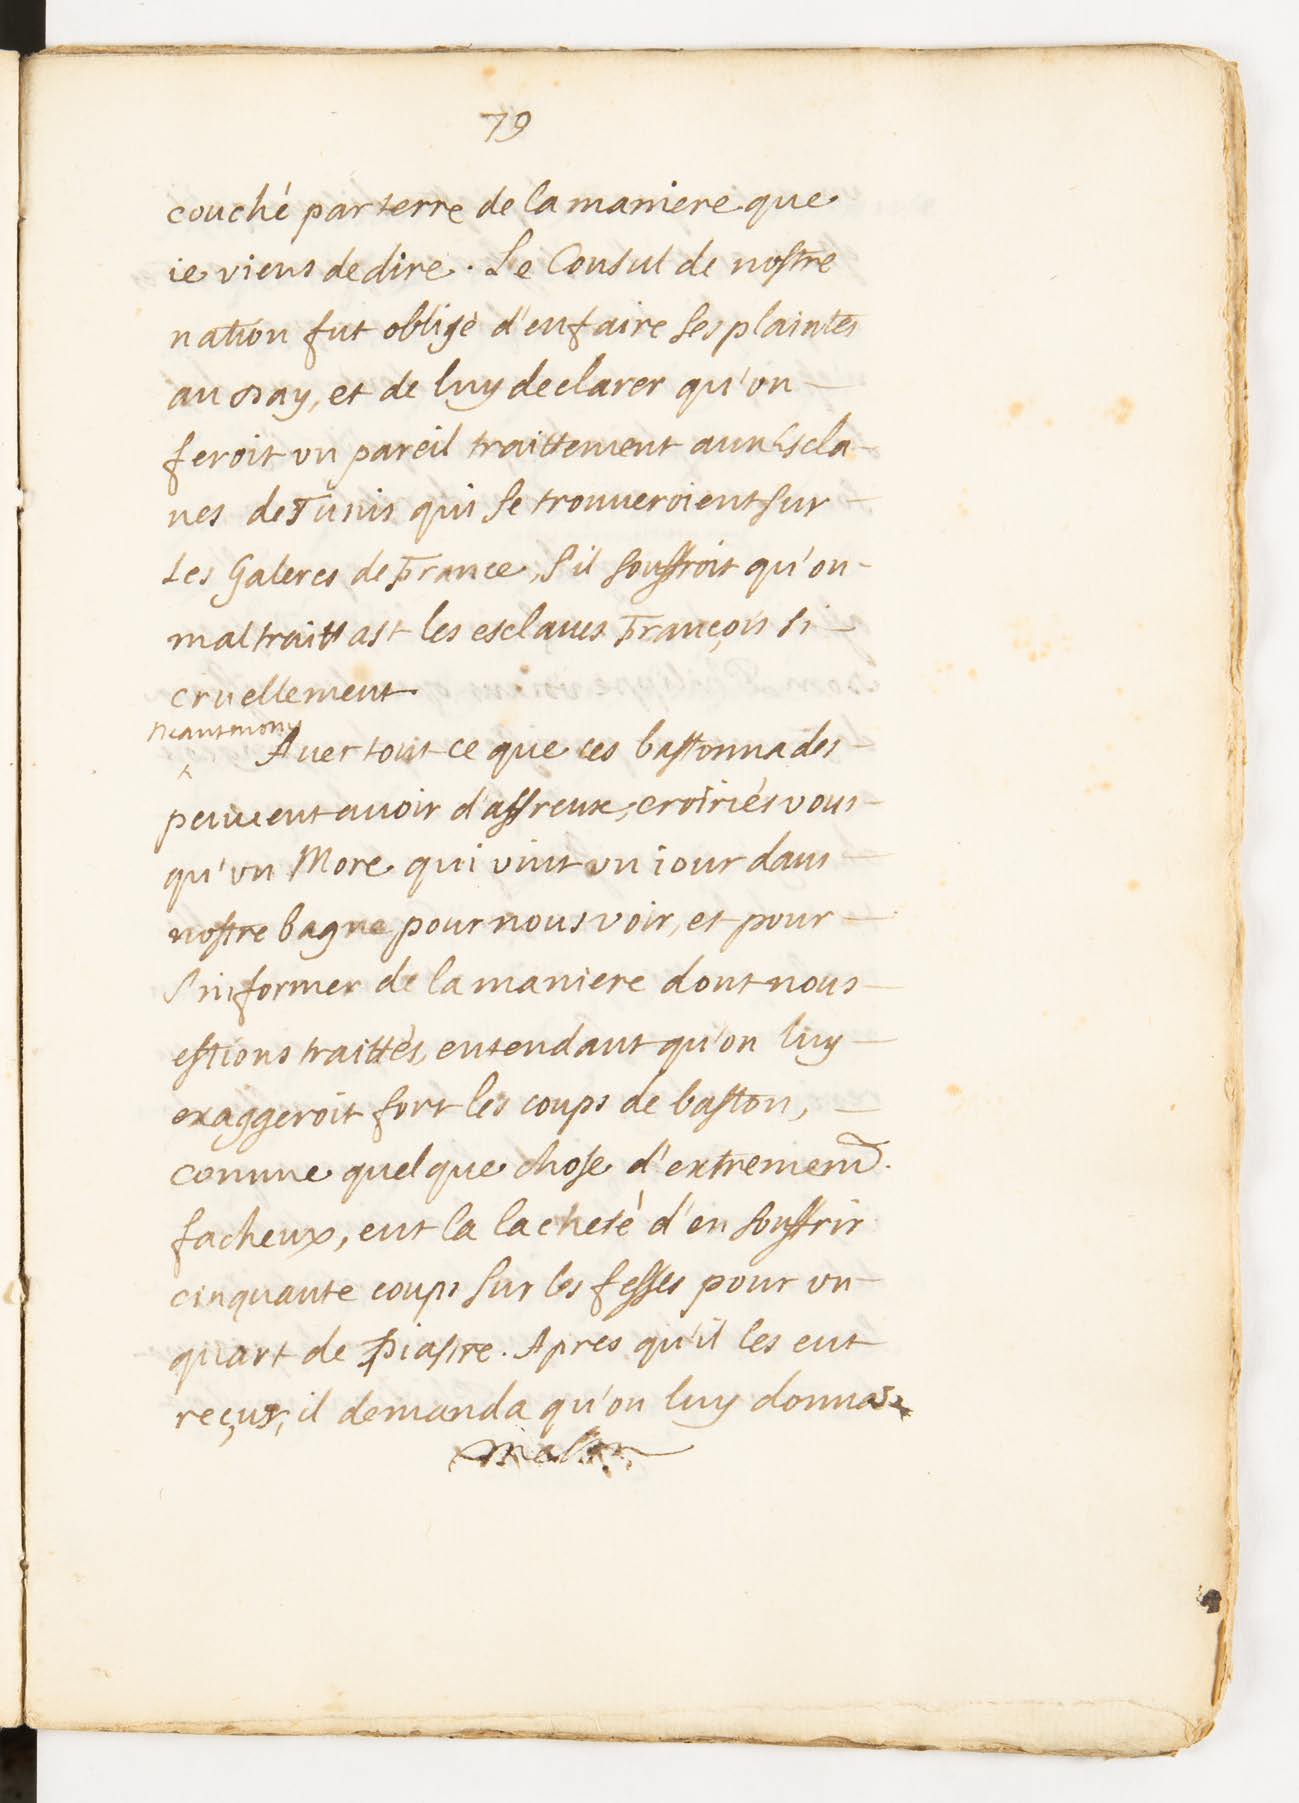 79
couché par terre de la maniere que
ie viens de dire. Le Consul de nostre
nation fut obligé d'en faire ses plaintes
au Day, et de luy declarer qu'on
feroit vn pareil traittement aux Escla-
ues de Tunis qui se trouueroient sur
Les Galeres de France, s'il souffroit qu'on
maltraittast les esclaues François si
cruellement.
Neantmoins
Auec tout ce que ces bastonnades
peuuent auoir d'affreux, croiriés vous
qu'vn More qui vint vn iour dans
nostre bagne pour nous voir, et pour
s'informer de la maniere dont nous
estions traittés, entendant qu'on luy
exaggeroit fort les coups de baston,
comme quelque chose d'extremem.t
facheux, eut la lacheté d'en souffrir
cinquante coups sur les fesses pour vn
quart de Piastre. Apres qu'il les eut
reçus, il demanda qu'on luy donnast